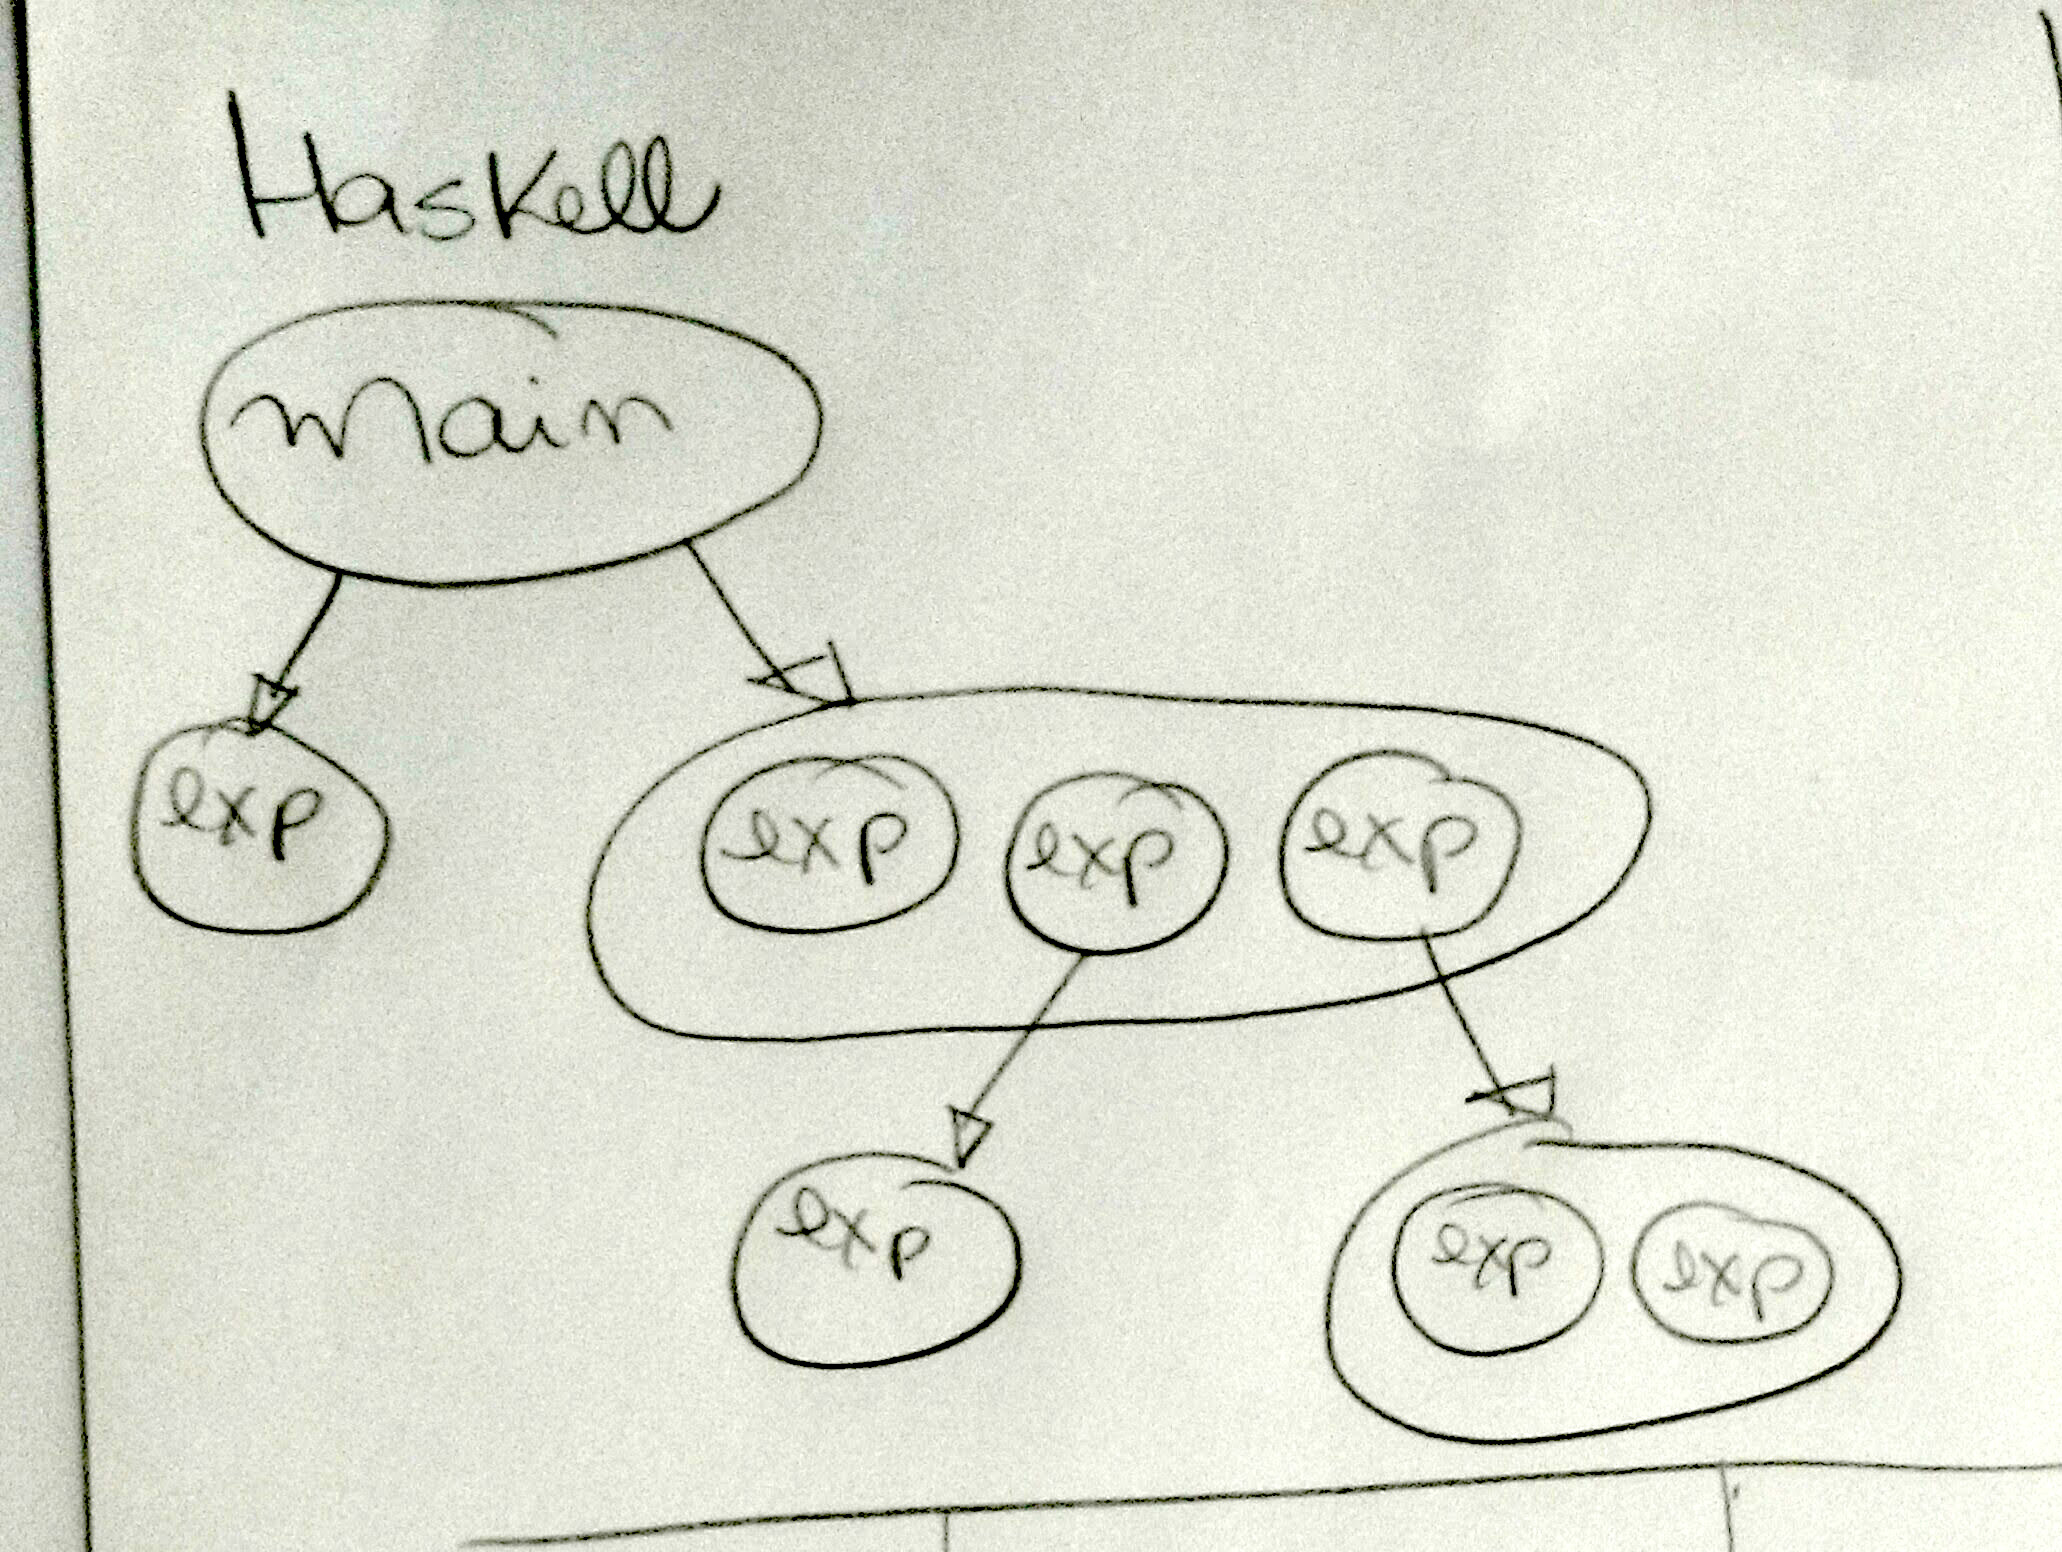 Haskell
main
exp
exp exp exp
exp
exp exp